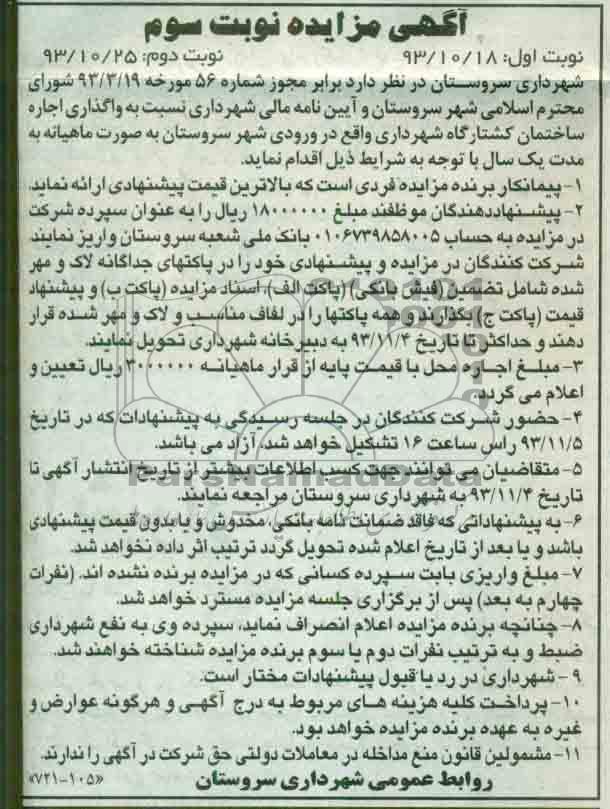 آگهی مزایده نوبت سوم
نوبت اول: ۹۳/۱۰/۱۸ نوبت دوم: ۹۳/۱۰/۲۵
شهرداری سروستان در نظر دارد برابر مجوز شماره ۵۶ مورخه ۹۳/۳/۱۹ شورای
محترم اسلامی شهر سروستان و آیین نامه مالی شهرداری نسبت به واگذاری اجاره
ساختمان کشتارگاه شهرداری واقع در ورودی شهر سروستان به صورت ماهیانه به
مدت یک سال با توجه به شرایط ذیل اقدام نماید.
۱- پیمانکار برنده مزایده فردی است که بالاترین قیمت پیشنهادی ارائه نماید.
۲- پیشنهاددهندگان موظفند مبلغ ۱۸۰۰۰۰۰۰ ریال را به عنوان سپرده شرکت
در مزایده به حساب ۰۱۰۶۷۳۹۸۵۸۰۰۵ بانک ملی شعبه سروستان واریز نمایند
شرکت کنندگان در مزایده و پیشنهادی خود را در پاکتهای جداگانه لاک و مهر
شده شامل تضمین (فیش بانکی) (پاکت الف)، اسناد مزایده (پاکت ب) و پیشنهاد
قیمت (پاکت ج) بگذارند و همه پاکتها را در لفاف مناسب و لاک و مهر شده قرار
دهند و حداکثر تا تاریخ ۹۳/۱۱/۴ به دبیرخانه شهرداری تحویل نمایند.
۳- مبلغ اجاره محل با قیمت پایه از قرار ماهیانه ۳۰۰۰۰۰۰ ریال تعیین و
اعلام می گردد.
۴- حضور شرکت کنندگان در جلسه رسیدگی به پیشنهادات که در تاریخ
۹۳/۱۱/۵ راس ساعت ۱۶ تشکیل خواهد شد، آزاد می باشد.
۵- متقاضیان می توانند جهت کسب اطلاعات بیشتر از تاریخ انتشار آگهی تا
تاریخ ۹۳/۱۱/۴ به شهرداری سروستان مراجعه نمایند.
۶- به پیشنهاداتی که فاقد ضمانت نامه بانکی، مخدوش و یا بدون قیمت پیشنهادی
باشد و یا بعد از تاریخ اعلام شده تحویل گردد ترتیب اثر داده نخواهد شد.
۷- مبلغ واریزی بابت سپرده کسانی که در مزایده برنده نشده اند. (نفرات
چهارم به بعد) پس از برگزاری جلسه مزایده مسترد خواهد شد.
۸- چنانچه برنده مزایده اعلام انصراف نماید، سپرده وی به نفع شهرداری
ضبط و به ترتیب نفرات دوم یا سوم برنده مزایده شناخته خواهند شد.
۹- شهرداری در رد یا قبول پیشنهادات مختار است.
۱۰- پرداخت کلیه هزینه های مربوط به درج آگهی و هرگونه عوارض و
غیره به عهده برنده مزایده خواهد بود.
۱۱- مشمولین قانون منع مداخله در معاملات دولتی حق شرکت در آگهی را ندارند.
روابط عمومی شهرداری سروستان «۷۲۱-۱۰۵»
ParsNamadData